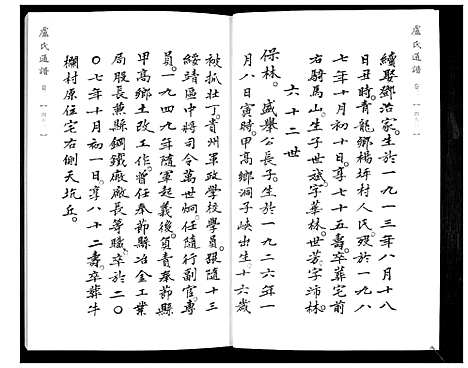 盧氏通譜
續娶鄒治家。生於一九一三年八月十八
日丑時。青龍鄉楊坪村人氏。歿於一九八
七年十月初十日。享七十五壽。卒葬宅前
右騎馬山。生子世斌。字蓽林。世芳。字沛林。
六十二世
保林。盛舉公長子。生於一九二六年一
月八日寅時。甲高鄉洞子峽出生。十六歲
盧氏通譜
被抓壯丁。貴州軍政學校學員。跟隨十三
綏靖區中將司令萬世炯。任隨行副官。專
員。一九四九年隨軍起義後。負責奉節縣
甲高鄉土改工作。曾任奉節縣冶金工業
局股長。兼縣鋼鐵廠廠長等職。卒於二0
0七年十月初一日。享八十二壽。卒葬牛
欄村原住宅右側天坑丘。